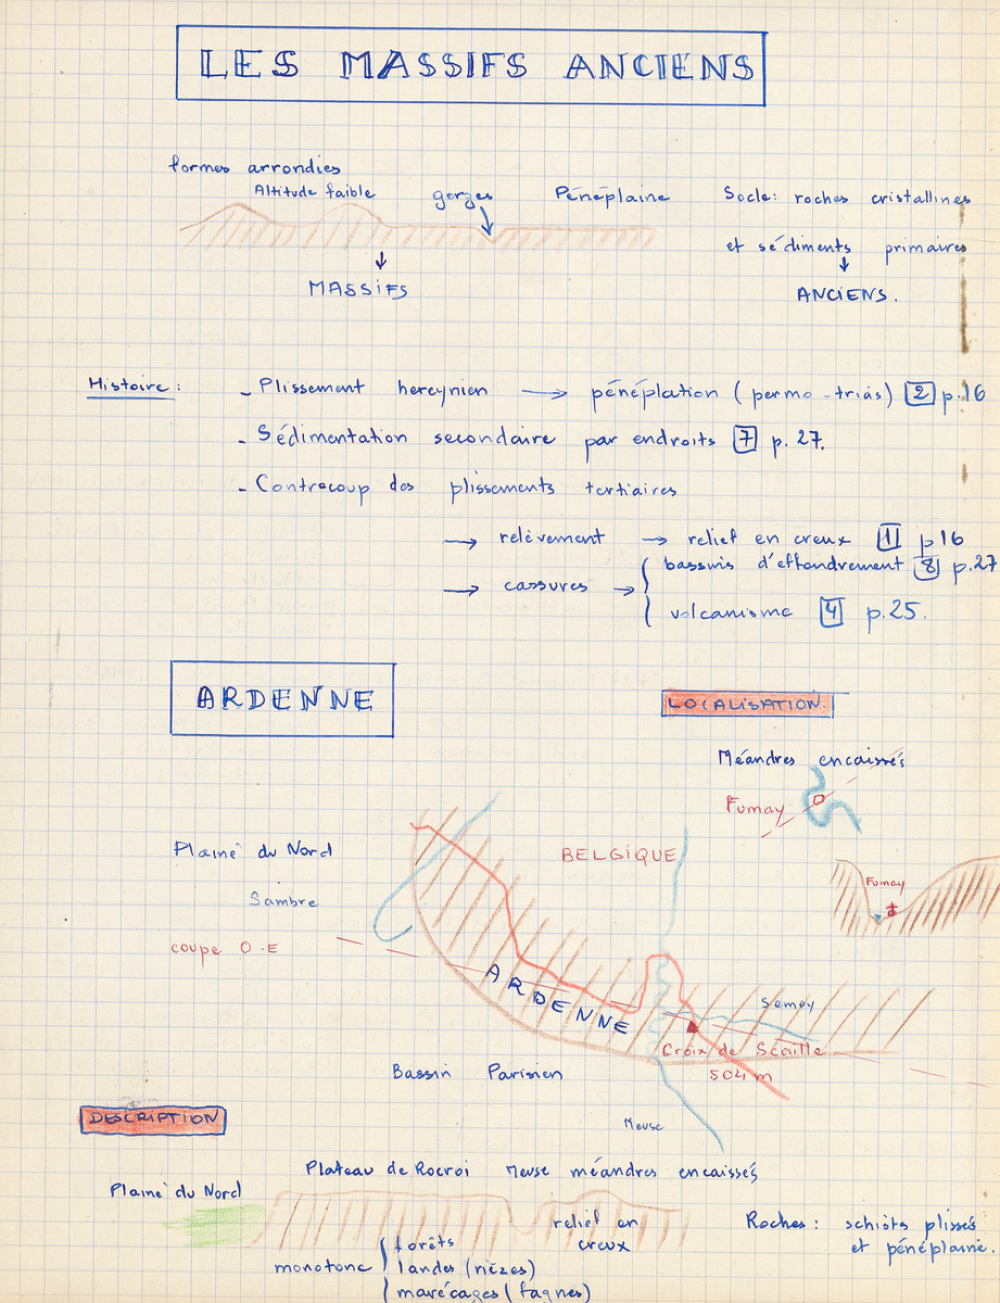 LES MASSIFS ANCIENS
formes arrondies
Altitude faible gorges Pénéplaine Socle: roches cristallines
et sédiments primaires
MASSIFS
ANCIENS.
Histoire: - Plissement hercynien → pénéplation (permo-trias) 2 p.16
- Sédimentation secondaire par endroits 7 p. 27.
- Contrecoup des plissements tertiaires
→ relèvement → relief en creux 1 p16
bassins d'effondrement 8 p.27
→ cassures →
volcanisme 4 p.25.
ARDENNE
LOCALISATION.
Méandres encaissés
Fumay
Plaine du Nord
BELGIQUE
Fumay
Sambre
coupe O.E
ARDENNE
Semoy
Croix de Scaille
504 m
Bassin Parisien
Meuse
DESCRIPTION
Plateau de Rocroi Meuse méandres encaissés
Plaine du Nord
relief en
creux
Roches: schists plissés
et pénéplaine.
forêts
monotone landes (rièzes)
marécages (fagnes)